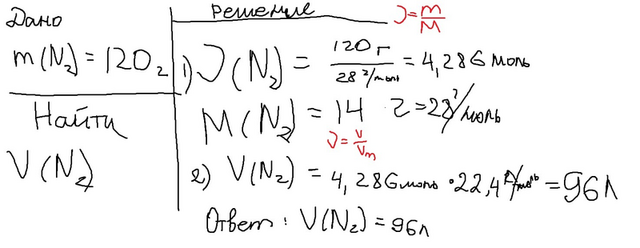 Дано
m(N₂) = 120 г
Найти
V(N₂)
Решение
ν = m/M
1) ν(N₂) = 120 г / 28 г/моль = 4,286 моль
M(N₂) = 14 · 2 = 28 г/моль
ν = V/Vm
2) V(N₂) = 4,286 моль · 22,4 л/моль = 96 л
Ответ: V(N₂) = 96 л